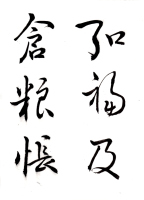 弘福及
倉粮帳